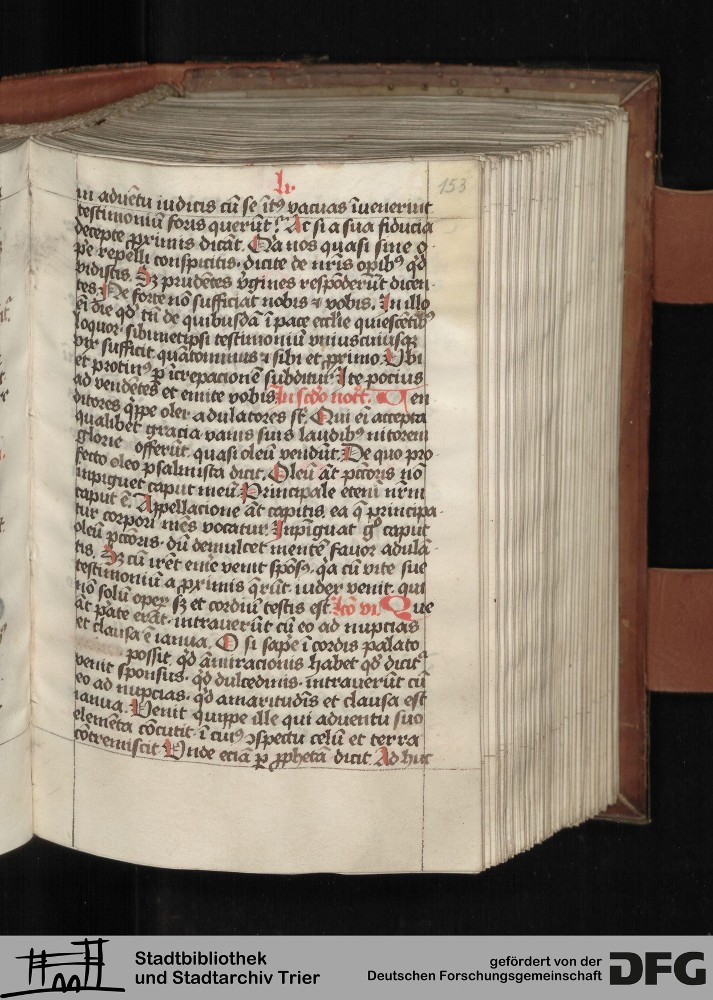 lv
153
in adventu iudicis cū se ītꝰ vacuas īuenerint
testimoniū foris querūt. Ac si a sua fiducia
decepte ꝓximis dicāt. Qͣa nos quasi sine o
ꝑe repelli conspicitis. dicite de nr̄is opibꝫ qd̛
vidistis. Sꝫ prudētes v̛gines respōderūt dicen
tes. Ne forte nō sufficiat nobis ⁊ vobis. In illo
ei̅ die qd̛ tn̄ de quibusdā ī pace eccl̄ie quiescētibꝫ
loquor. sibimetipsi testimoniū vniuscuiusqꝫ
vix sufficit quātominus ⁊ sibi et ꝓximo. Vbi
et protinꝰ ꝑ īcrepacionē subditur. Ite pocius
ad vendētes et emite vobis. In scd̄o noct̄. Ven
ditores qͥppe olei adulatores st̄. Qui ei̅ accepta
qualibet gracia vanis suis laudibꝫ nitorem
glorie offerūt. quasi oleū vendūt. De quo pro
fecto oleo psalmista dicit. Oleū āt pctōris nō
inpiguet caput meū. Principale etenī nr̄m
caput ē. Appellacione āt capitis ea q̄ principa
tur corpori mēs vocatur. Inpīguat gͦ caput
oleū pctōris. dū demulcet mentē fauor adulā
tis. Sꝫ cū irēt emēe venit spōsꝰ. qͣa cū vite sue
testimoniū a ꝓximis qͣrūt. iudex venit. qui
nō solū opeꝝ sꝫ et cordiū testis est. lcō vi Que
āt ꝑate erāt. intrauerūt cū eo ad nuptias
et clausa ē ianua. O si saꝑe ī cordis palato
possit. qd̛ āmiracionis habet qd̛ dicitͬ
venit sponsus. qd̛ dulcedinis. intrauerūt cū
eo ad nupcias. qd̛ amaritudīs et clausa est
ianua. Venit quippe ille qui aduentu suo
elemēta cōcutit. ī cuiꝰ ꝯspectu celū et terra
cōtremiscit. Vnde eciā ꝑ ꝓphetā dicit. Adhuc
Stadtbibliothek
und Stadtarchiv Trier
gefördert von der
Deutschen Forschungsgemeinschaft
DFG